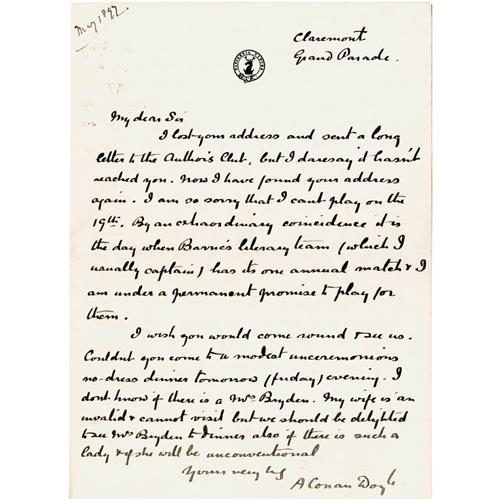 May 1897
Claremont
Grand Parade.
My dear Sir
I lost your address and sent a long
letter to the Author's Club, but I daresay it hasn't
reached you. Now I have found your address
again. I am so sorry that I cant play on the
19th. By an extraordinary coincidence it is
the day when Barrie's literary team (which I
usually captain) has its one annual match & I
am under a permanent promise to play for
them.
I wish you would come round & see us.
Couldnt you come to a modest unceremonious
no-dress dinner tomorrow (friday) evening. I
dont know if there is a Mrs Bryden. My wife is an
invalid & cannot visit but we should be delighted
to see Mrs Bryden to dinner also if there is such a
lady & if she will be unconventional
Yours very
A Conan Doyle.